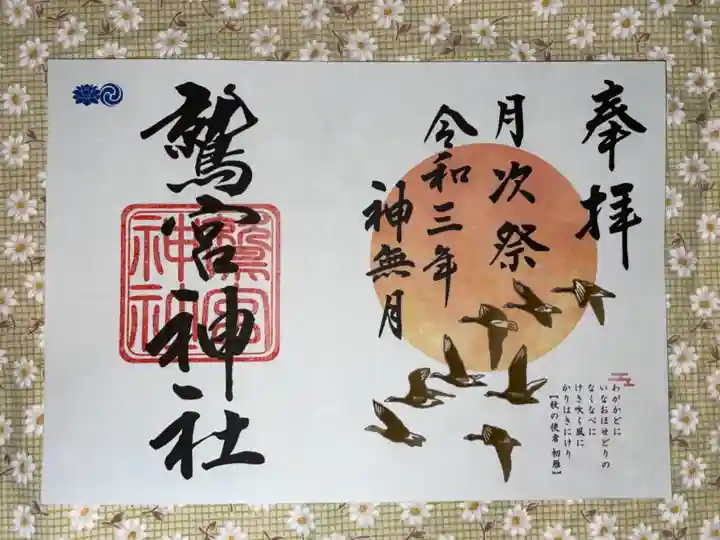 奉拝
月次祭
令和三年
神無月
わがかどに
いなおほせどりの
なくなべに
けさ吹く風に
かりはきにけり
【秋の使者 初雁】
鷲宮神社
鷲宮
神社